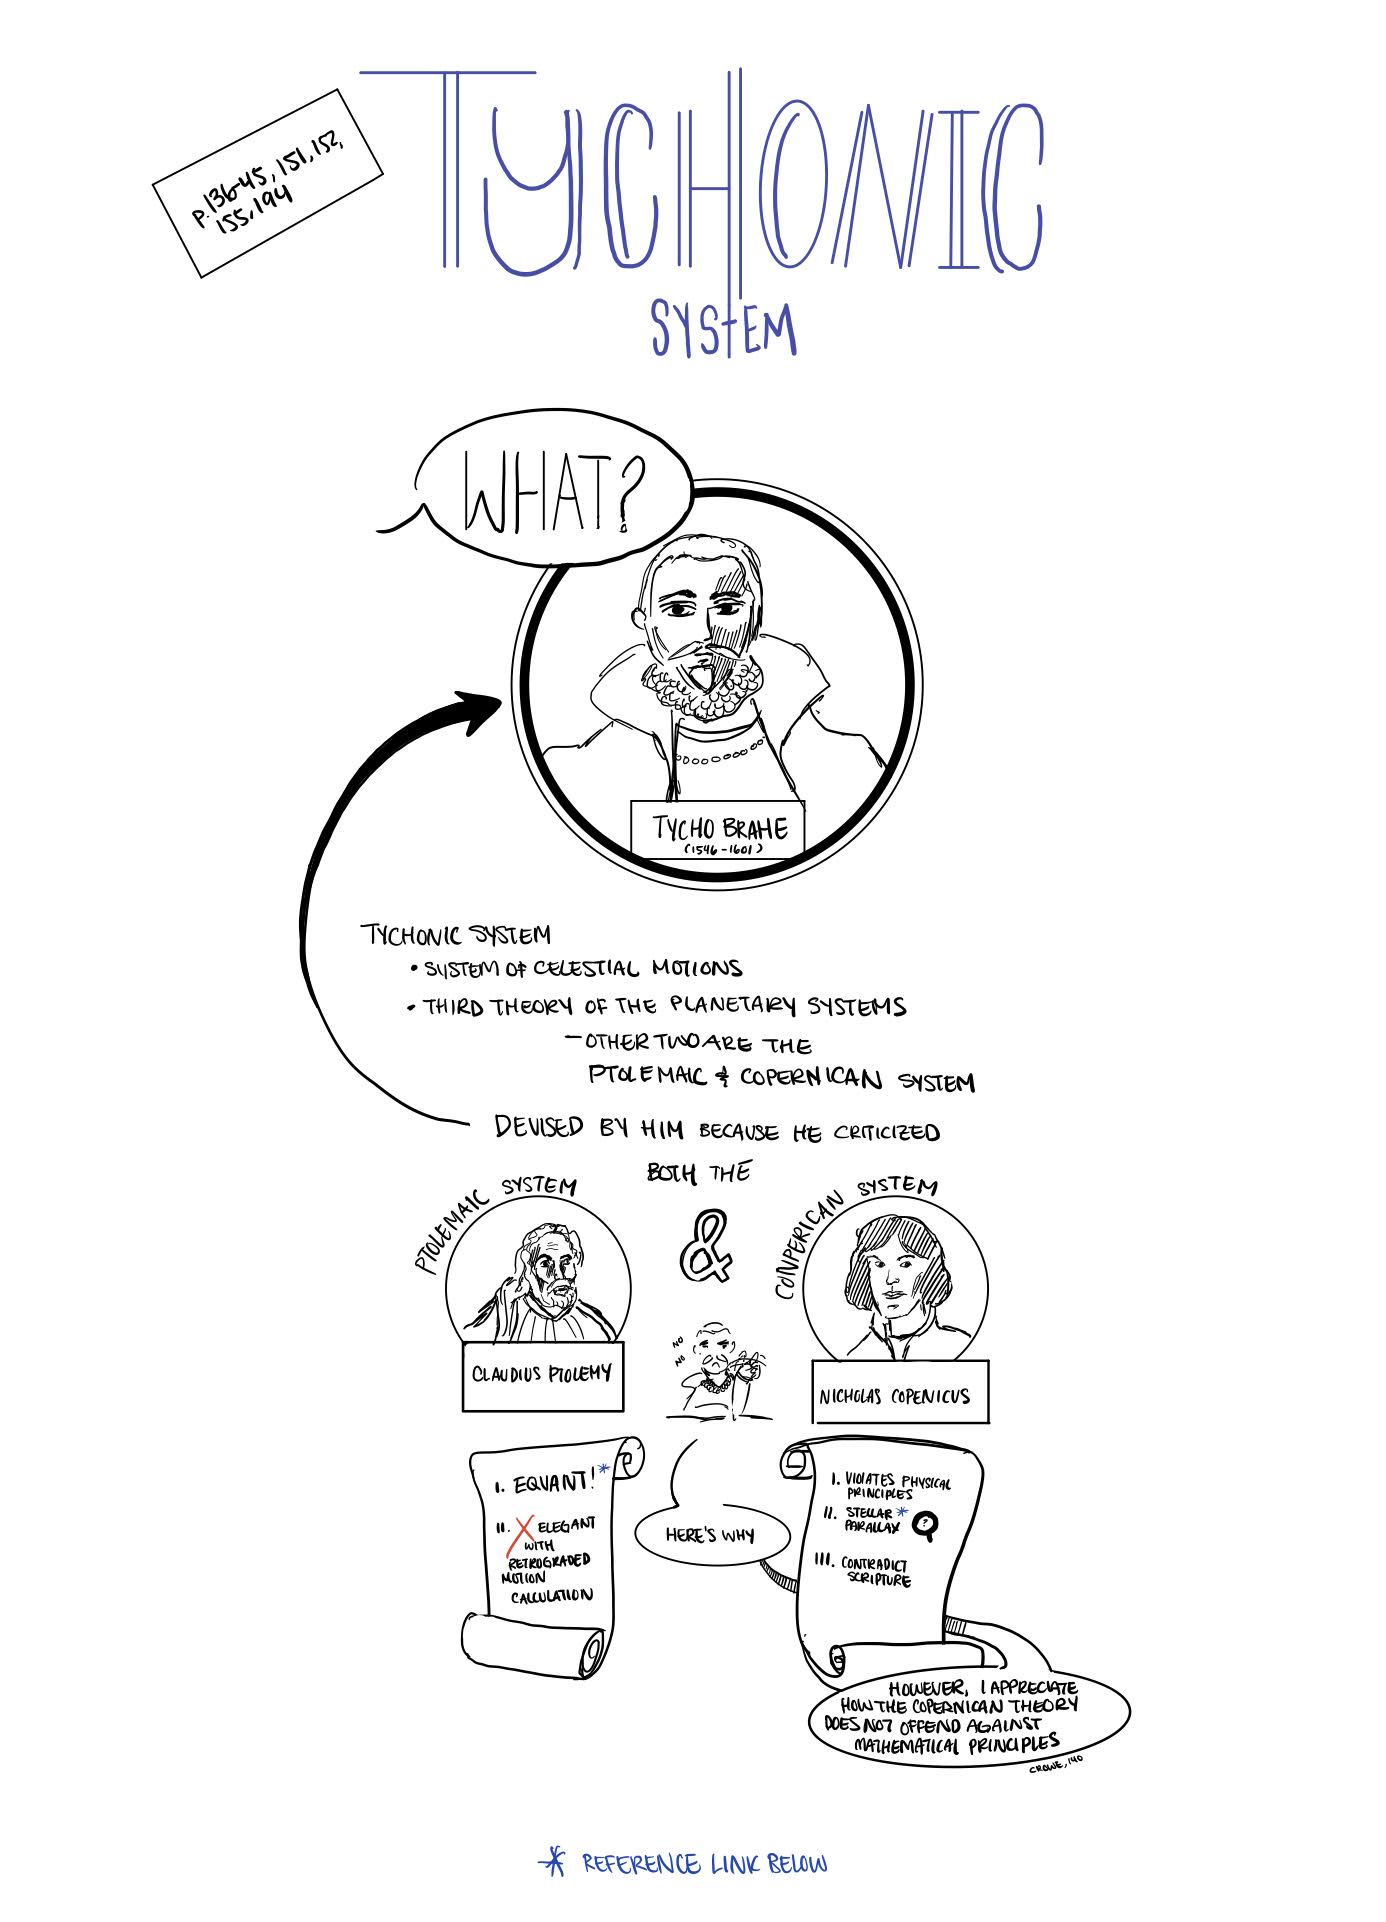 TYCHONIC
SYSTEM
P. 136-45, 151, 152,
155, 194
WHAT?
TYCHO BRAHE
(1546-1601)
TYCHONIC SYSTEM
• SYSTEM OF CELESTIAL MOTIONS
• THIRD THEORY OF THE PLANETARY SYSTEMS
– OTHER TWO ARE THE
PTOLEMAIC & COPERNICAN SYSTEM
DEVISED BY HIM BECAUSE HE CRITICIZED
BOTH THE
PTOLEMAIC SYSTEM
&
CONPERICAN SYSTEM
CLAUDIUS PTOLEMY
NO
NO
NICHOLAS COPENICUS
I. EQUANT! *
II. X ELEGANT
WITH
RETROGRADED
MOTION
CALCULATION
HERE'S WHY
I. VIOLATES PHYSICAL
PRINCIPLES
II. STELLAR *
PARALLAX ?
III. CONTRADICT
SCRIPTURE
HOWEVER, I APPRECIATE
HOW THE COPERNICAN THEORY
DOES NOT OFFEND AGAINST
MATHEMATICAL PRINCIPLES
CROWE, 140
* REFERENCE LINK BELOW